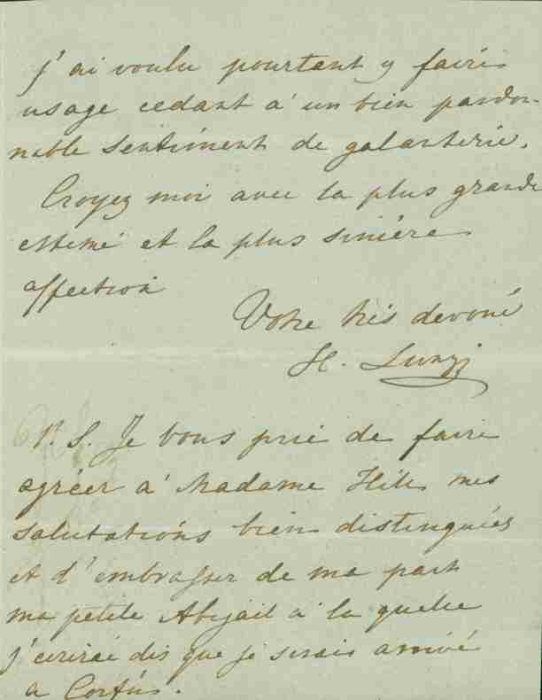 j'ai voulu pourtant y faire
usage cedant à un bien pardon-
nable sentiment de galanterie.
Croyez moi avec la plus grande
estime et la plus sincére
affection
Votre trés devoué
H. Lunzi
P. S. Je vous prie de faire
agréer à Madame Hill mes
salutations bien distinguées
et d'embrasser de ma part
ma petite Abijail à la quelle
j'ecrirai dés que je serais arrivé
a Corfou.